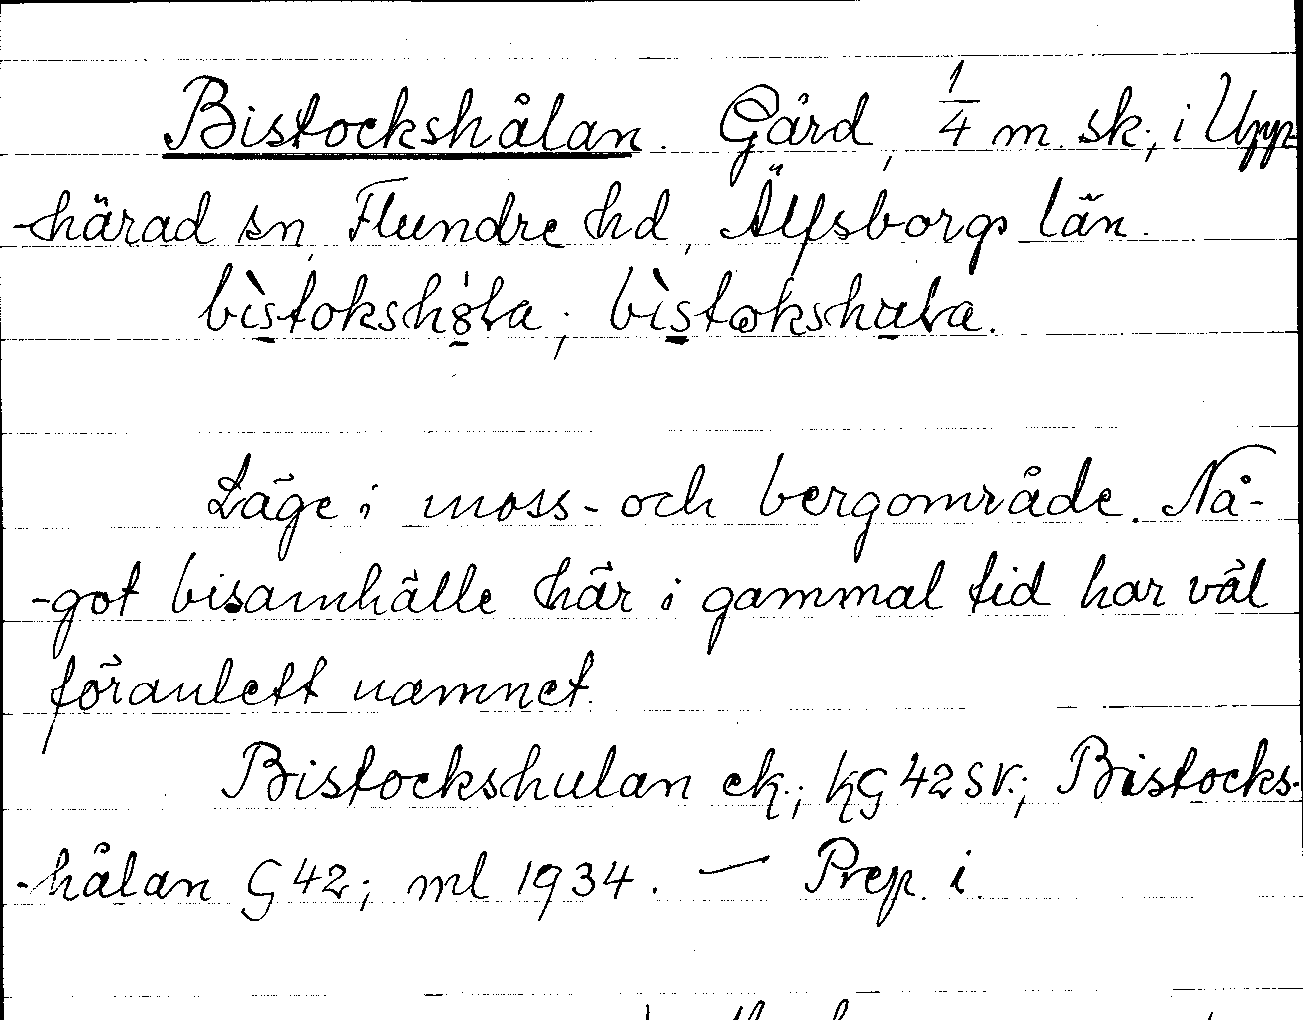 Bistockshålan. Gård, 1/4 m. sk; i Upp-
-härad sn, Flundre hd, Älfsborgs län.
bìstokshȯ̱la; bìstokshula.
Läge i moss- och bergområde. Nå-
-got bisamhälle här i gammal tid har väl
föranlett namnet.
Bistockshulan ek.; kG 42 SV.; Bistocks-
-hålan G 42; ml 1934. — Prep. i.